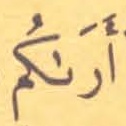 أَرَىٰكُم